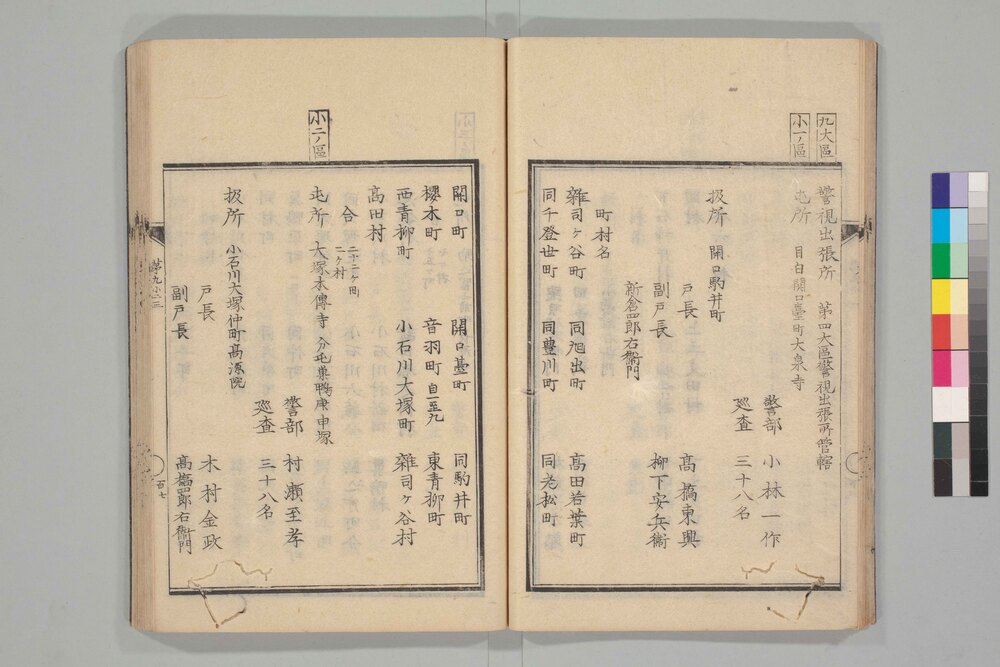 九大區
小一ノ區
警視出張所 第四大區警視出張所管轄
屯所 目白關口臺町大泉寺
警部 小林一作
巡査 三十八名
扱所 關口駒井町
戸長 高橋東興
副戸長 柳下安兵衞
新倉四郎右衞門
町村名
雜司ヶ谷町 同旭出町 高田若葉町
同千登世町 同豊川町 同老松町
關口町 關口臺町 同駒井町
櫻木町 音羽町自一至九 東青柳町
西青柳町 小石川大塚町 雜司ヶ谷村
高田村
合 二十二ヶ町
二ヶ村
小二ノ區
屯所 大塚本傳寺 分屯巣鴨庚申塚
警部 村瀬至孝
巡査 三十八名
扱所 小石川大塚仲町高源院
戸長 木村金政
副戸長 高橋四郎右衞門
第九小二三
百七